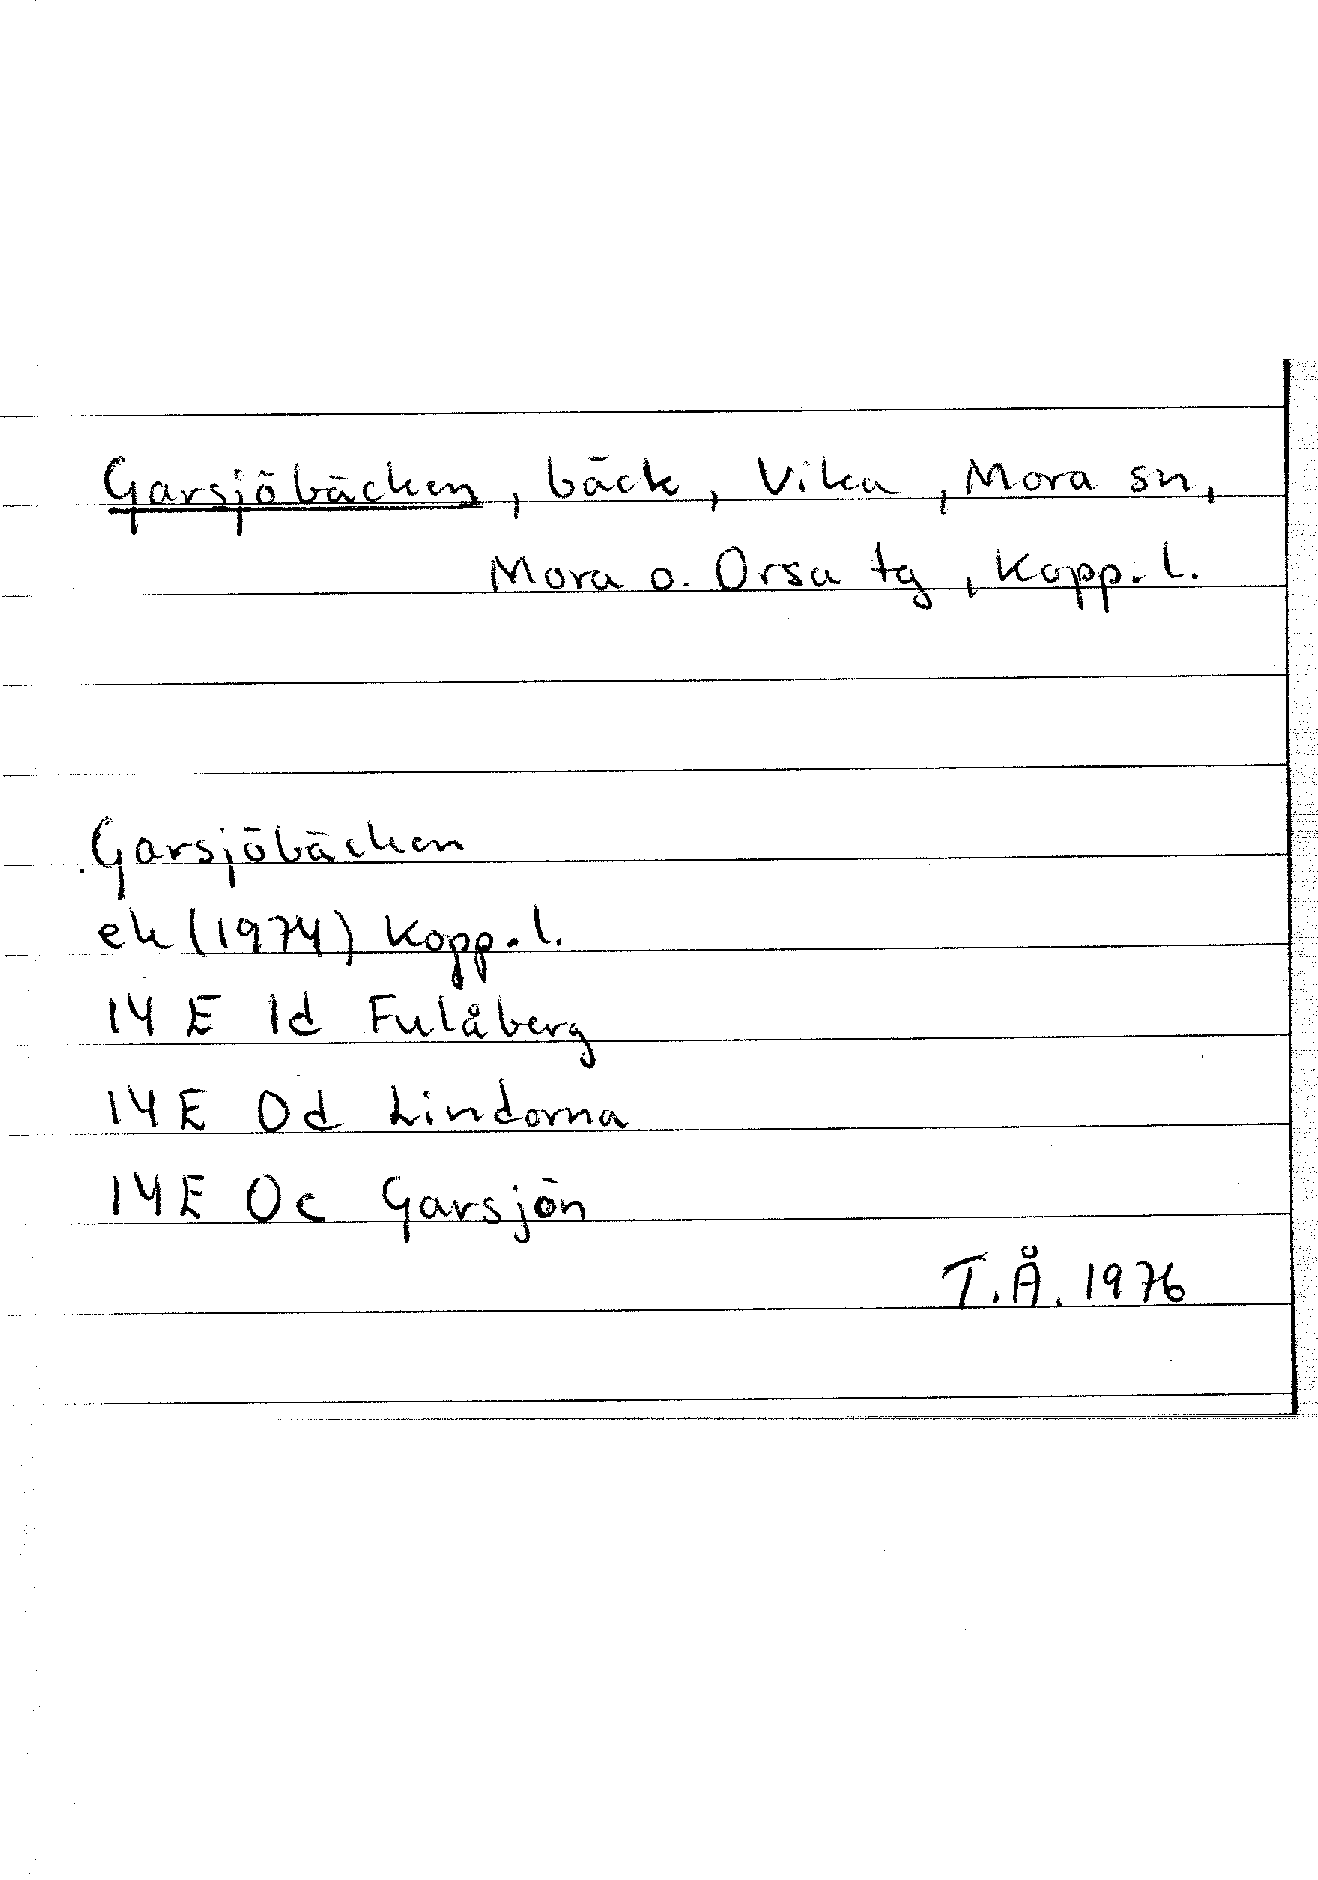 Garsjöbäcken, bäck, Vika, Mora sn,
Mora o. Orsa tg, Kopp. l.
Garsjöbäcken
ek (1974) Kopp. l.
14 E 1d Fulåberg
14 E 0d Lindorna
14 E 0c Garsjön
T.Å. 1976